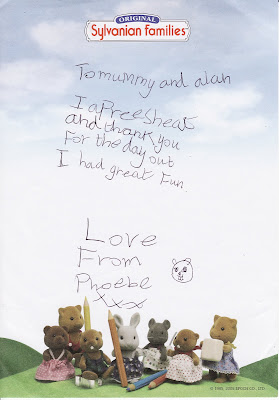 ORIGINAL
Sylvanian Families
To mummy and alan
I aPreesheat
and thank you
For the day out
I had great Fun.
Love
From
Phoebe
xxx